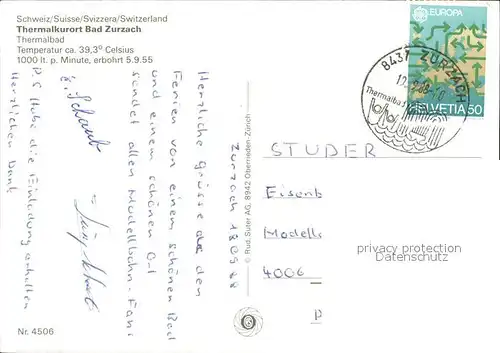 Schweiz/Suisse/Svizzera/Switzerland
Thermalkurort Bad Zurzach
Thermalbad
Temperatur ca. 39,3° Celsius
1000 lt. p. Minute, erbohrt 5.9.55
EUROPA
HELVETIA 50
8437 ZURZACH
Thermalbad
Zurzach
Herzliche Grüsse den
Ferien von einem schönen Bad
und einem schönen
sendet allen Modellbahn-Fan
P.S Habe die Einladung erhalten
Herzlichen Dank
© Rud. Suter AG, 8942 Oberrieden-Zürich
STUDER
Eisenb
Modells
4006
privacy protection
Datenschutz
Nr. 4506